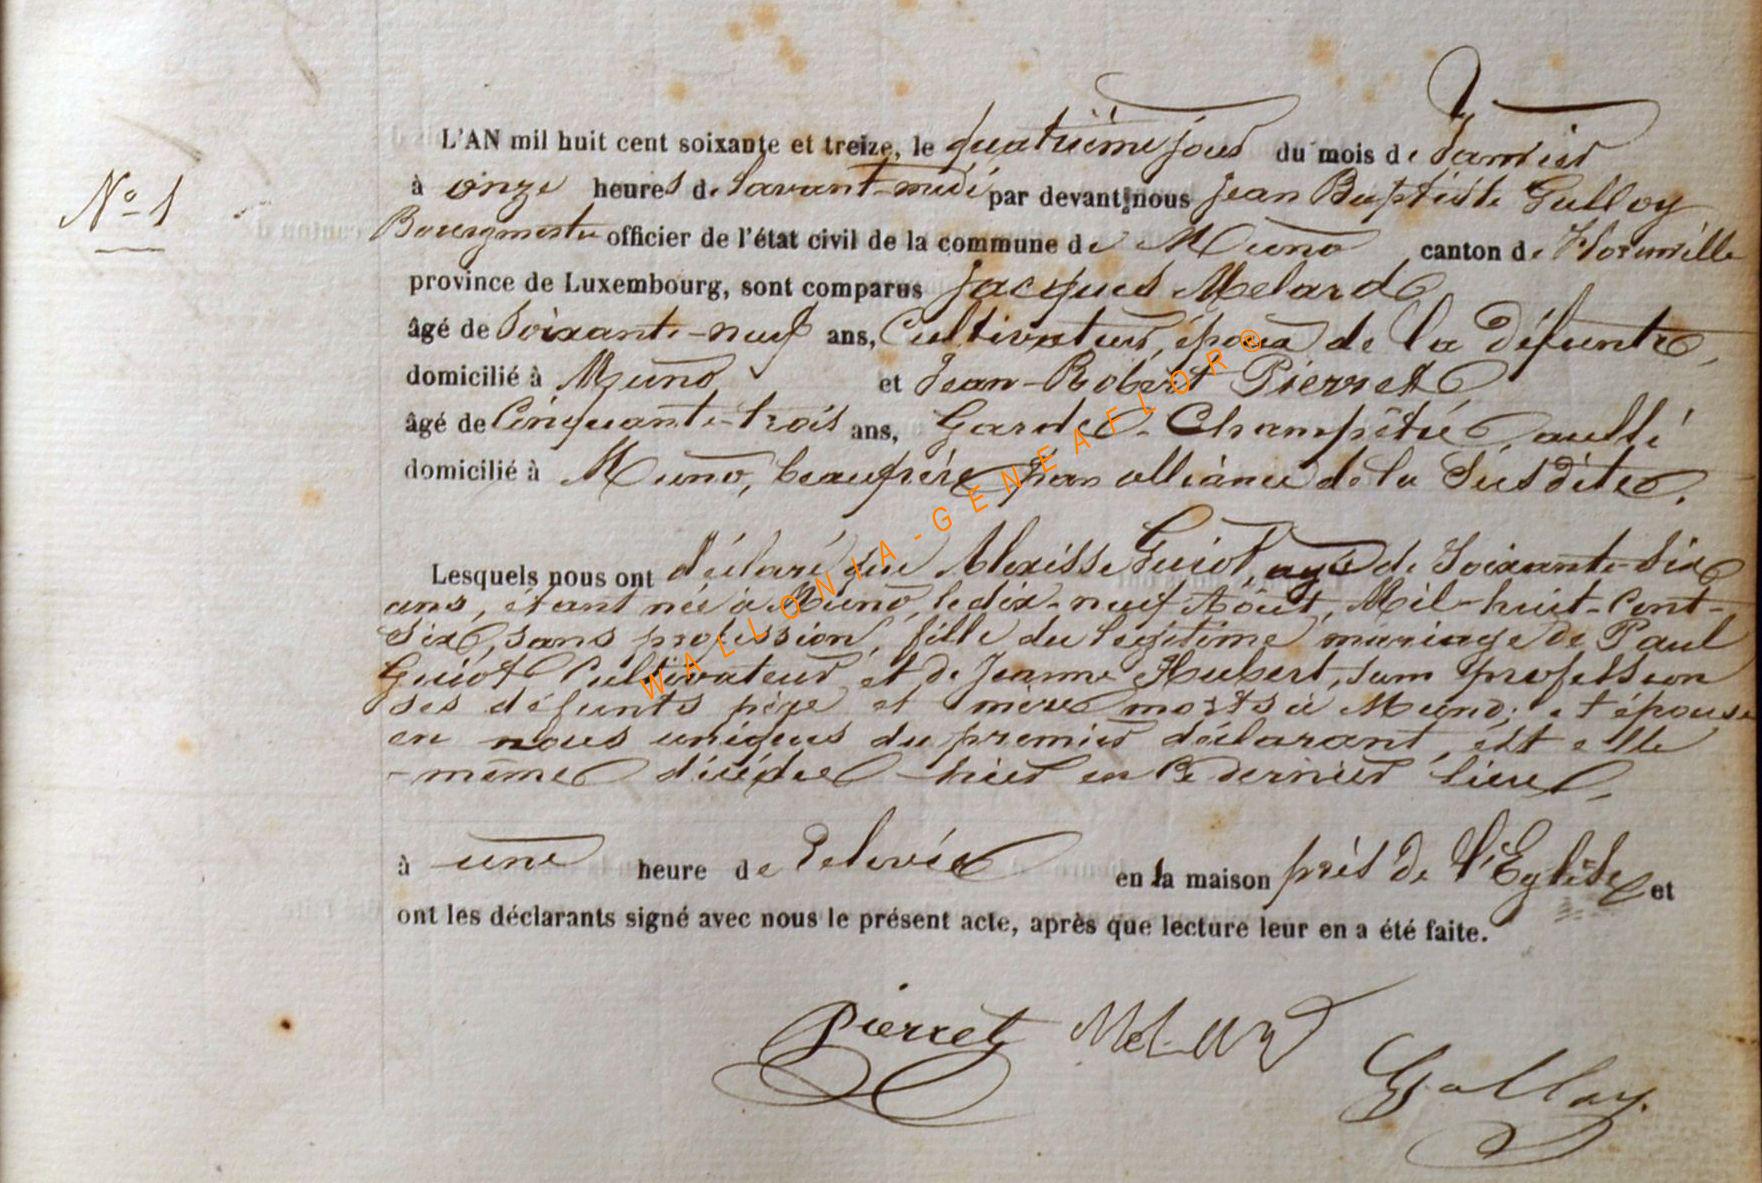 N° 1
L'AN mil huit cent soixante et treize, le quatrième jour du mois de Janvier
à onze heures de l'avant-midi par devant nous Jean Baptiste Galloy
Bourgmestre officier de l'état civil de la commune de Muno canton de Florenville
province de Luxembourg, sont comparus Jacques Melard
âgé de Soixante-neuf ans, Cultivateur, époux de la défunte,
domicilié à Muno et Jean-Robert Pierret
âgé de Cinquante-trois ans, Garde-Champêtre, aussi
domicilié à Muno, beaufrère par alliance de la Susdite.
Lesquels nous ont déclaré que Guiot, agé de Soixante-Six
ans, étant née à Muno, le dix-neuf Août, Mil-huit-Cent-
Six, sans profession, fille du légitime mariage de Paul
Guiot Cultivateur et de Jeanne Hubert, sans profession
ses défunts père et mère morts à Muno; et épouse
en du premier déclarant, est elle
-même décédée hier en ce dernier lieu,
à une heure de Relevée en la maison près de l'Eglise et
ont les déclarants signé avec nous le présent acte, après que lecture leur en a été faite.
Pierret Melard
Galloy
WALLONIA-GENEAFLOR®